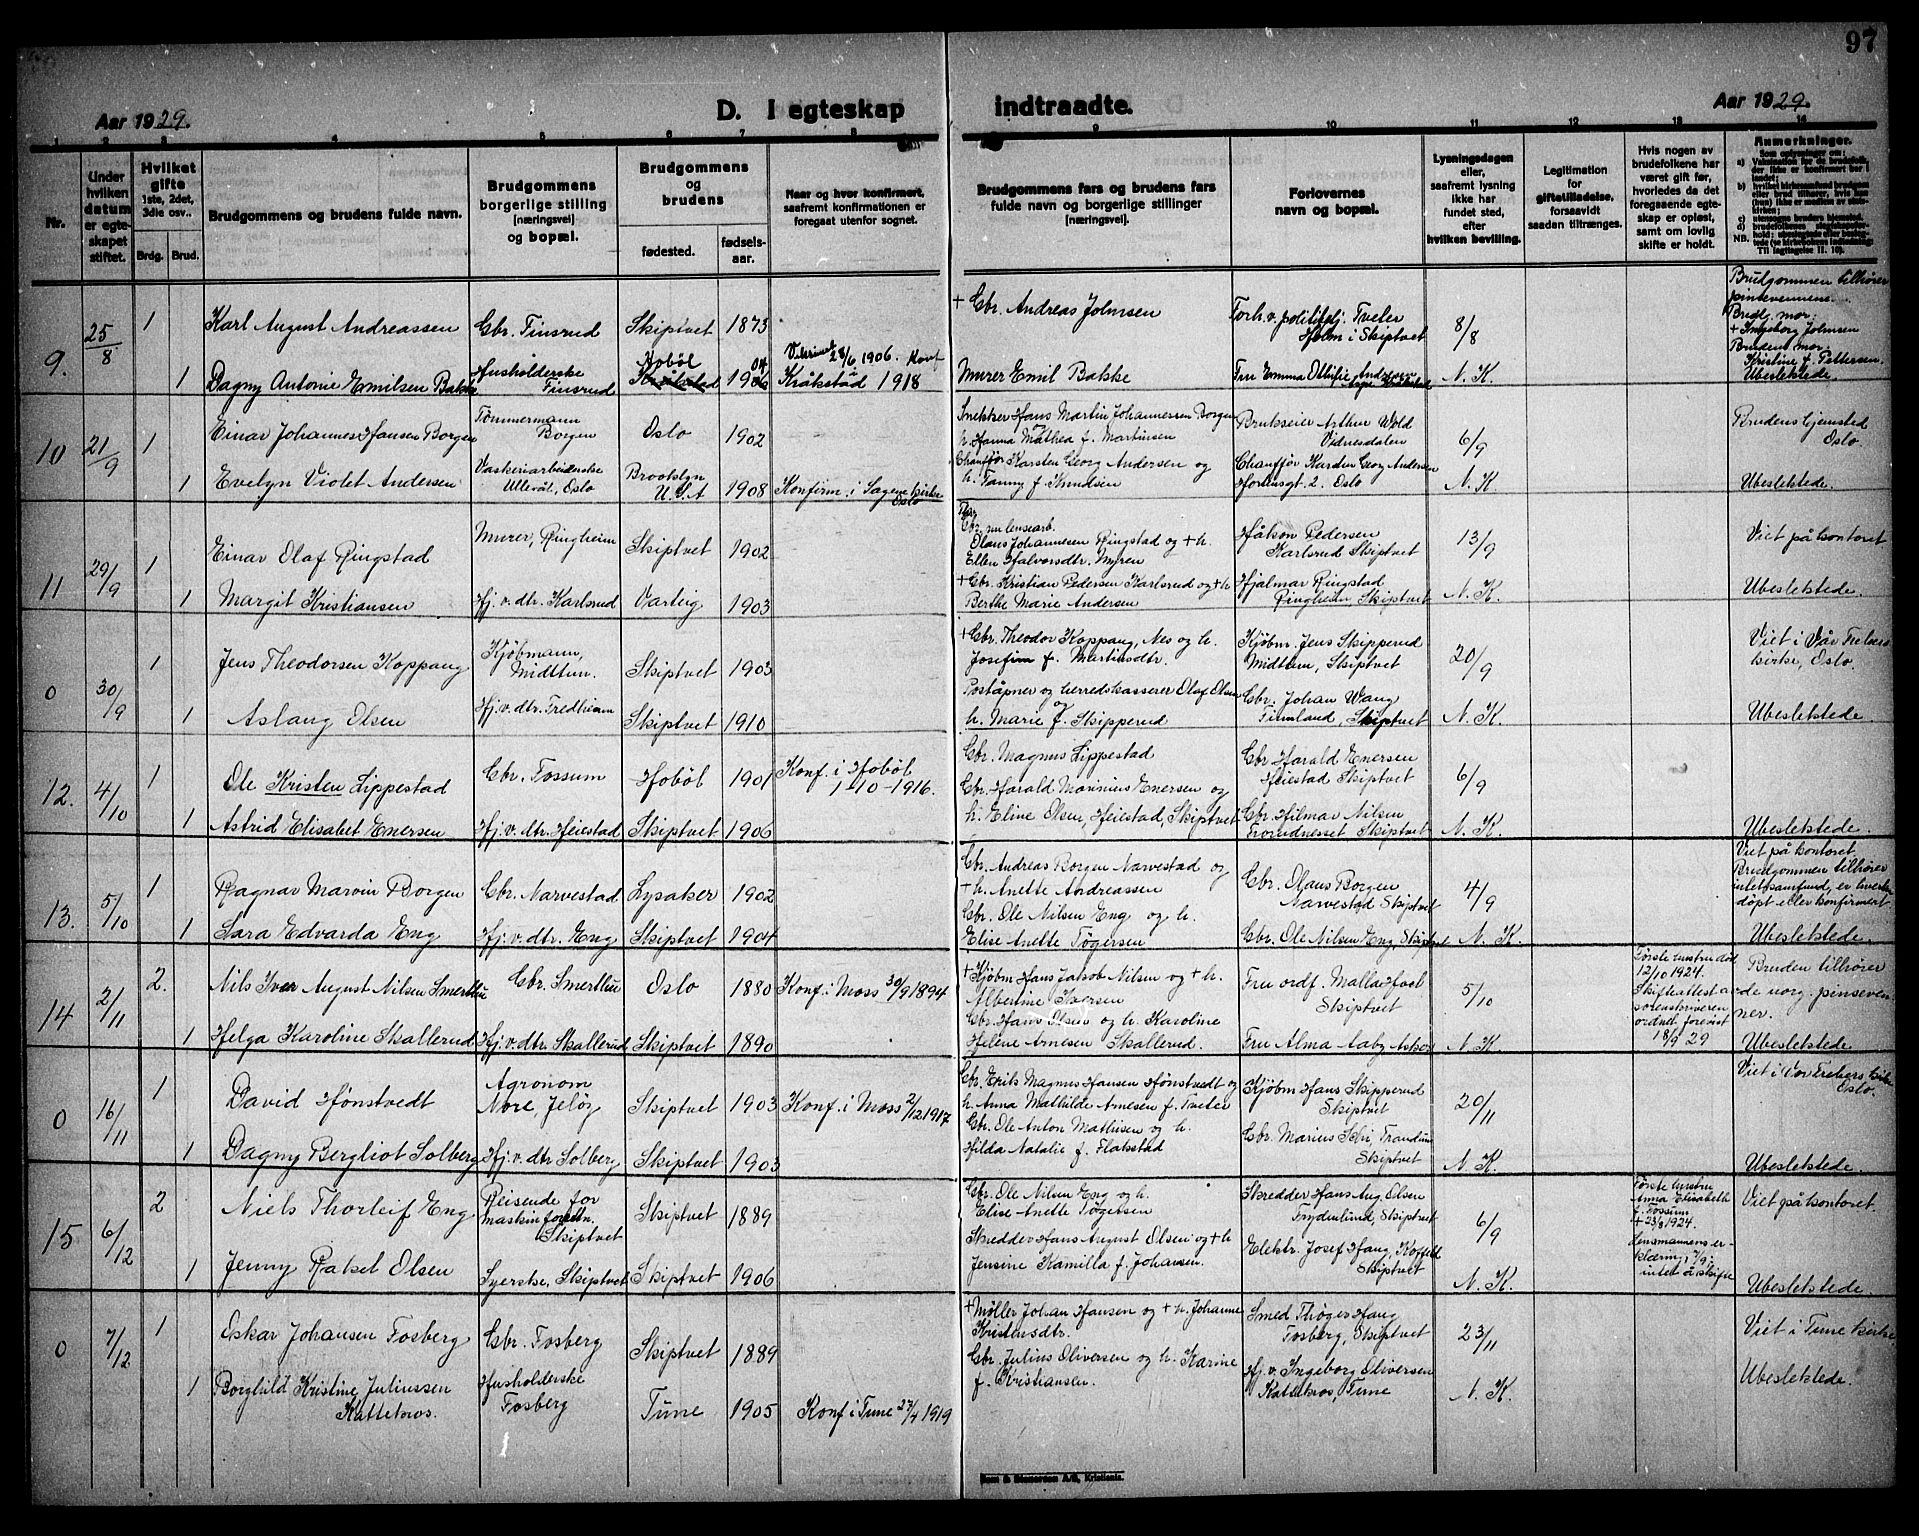 97
Aar 1929.
D. I egteskap indtraadte.
Aar 1929.
1 2 3 4 5 6 7 8 9 10 11 12 13 14
Nr.
Under hvilken datum er egteskapet stiftet.
Hvilket gifte 1ste, 2det, 3die osv..
Brdg. Brud.
Brudgommens og brudens fulde navn.
Brudgommens borgerlige stilling [næringsvei] og bopæl.
Brudgommens og brudens
fødested.
fødselsaar.
Naar og hvor konfirmert, saafremt konfirmationen er foregaat utenfor sognet.
Brudgommens fars og brudens fars fulde navn og borgerlige stillinger [næringsvei].
Forlovernes navn og bopæl.
Lysningsdagen eller, saafremt lysning ikke har fundet sted, efter hvilken bevilling.
Legitimation for giftetilladelse, forsaavidt saadan tiltrænges.
Hvis nogen av brudefolkene har været gift før, hvorledes da det foregaaende egteskap er opløst, samt om lovlig skifte er holdt.
Anmerkninger.
9. 25/8 1 Karl August Andreassen Gbr. Finsrud Skiptvet 1873 + Gbr. Andreas Johnsen Forh.v. politifulj. Tveter Holm i Skiptvet 8/8 Brudgommen tilhører pinsevennene. Brudg. mor: + Ingeborg Johnsen Brudens mor: Kristine f. Pettersen.
1 Dagny Antonie Emilsen Bakke Husholderske Finsrud Hobøl Kråkstad 1904 28/6 1906. Konf. Kråkstad 1918 Murer Emil Bakke Fru Emma Ottilie N. K. Ubeslektede.
10 21/9 1 Einar Johannes Hansen Borgen Tømmermann Borgen Oslo 1902 Snekker Hans Martin Johannessen Borgen og h. Hanna Mathea f. Martinsen Brukseier Arthur Wold Vidnesdalen 6/9 Brudens hjemsted Oslo
1 Evelyn Violet Andersen Vaskeriarbeiderske Ullevål, Oslo Brooklyn U.S.A 1908 Konfirm. i Sagene kirke Oslo Chauffør Karsten Georg Andersen og h. Fanny f. Knudsen Chauffør Karsten Georg Andersen 2. Oslo N. K. Ubeslektede.
11 29/9 1 Einar Olaf Ringstad Murer, Ringheim Skiptvet 1902 Gbr. nu lensearb. Olaus Johannesen Ringstad og + h. Ellen Halvorsdtr. Myren Håkon Pedersen Karlsrud Skiptvet 13/9 Viet på kontoret
1 Margit Kristiansen Hj. v. dtr. Karlsrud Varteig 1903 + Gbr. Kristian Pedersen Karlsrud og + h. Berthe Marie Andersen Hjalmar Ringstad Ringheim, Skiptvet N. K. Ubeslektede.
0 30/9 1 Jens Theodorsen Koppang Kjøbmann, Midttun. Skiptvet 1903 + Gbr. Theodor Koppang, Nes og h. Josefine f. Martinsdtr. Kjøbm. Jens Skipperud Midttun, Skiptvet 20/9 Viet i Vår Frelsers kirke, Oslo.
1 Aslaug Olsen Hj. v. dtr. Fredheim Skiptvet 1910 Poståpner og herredskasserer Olaf Olsen og h. Marie f. Skipperud Gbr. Johan Wang Finnland, Skiptvet N. K. Ubeslektede
12. 4/10 1 Ole Kristen Lippestad Gbr. Fossum Hobøl 1901 Konf. i Hobøl 1-10-1916. Gbr. Magnus Lippestad Gbr Harald Enersen Heiestad Skiptvet 6/9
1 Astrid Elisabet Enersen Hj. v. dtr. Heiestad Skiptvet 1906 Gbr. Harald Marinius Enersen og h. Eline Olsen, Heiestad, Skiptvet Gbr. Hilmar Nilsen Skiptvet N. K. Ubeslektede.
13. 5/10 1 Ragnar Marvin Borgen Gbr. Narvestad Lysaker 1902 Gbr. Andreas Borgen Narvestad og + h. Anette Andreassen Gbr. Olaus Borgen Narvestad Skiptvet 4/9 Viet på kontoret. Brudgommen tilhører intet samfund, er hverken døpt eller konfirmert
1 Sara Edvarda Eng Hj. v. dtr. Eng Skiptvet 1904 Gbr. Ole Nilsen Eng og h. Elise Anette Tøgersen Gbr. Ole Nilsen Eng, Skiptvet N. K. Ubeslektede.
14 2/11 2. Nils Iver August Nilsen Smerthu Gbr. Smerthu Oslo 1880 Konf. i Moss 30/9 1894 + Kjøbm Hans Jakob Nilsen og + h. Albertine Iversen Fru ordf. Malla Hvol Skiptvet 5/10 Første hustru død 12/10 1924. Skifteattest av sorenskriveren ordnet forevist 18/9 29 Bruden tilhører de norg. pinsevenner.
1 Helga Karoline Skallerud Hj. v. dtr Skallerud Skiptvet 1890 Gbr. Hans Olsen og h. Karoline Helene Arnesen Skallerud. Fru Alma Aaby N. K. Ubeslektede
0 16/11 1 David Hønstvedt Agronom Nore, Jeløy Skiptvet 1903 Konf. i Moss 2/12 1917 Gbr. Erik Magnus Hansen Hønstvedt og h. Anna Mathilde Arnesen f. Tveter Kjøbm Hans Skipperud Skiptvet 20/11 Viet i Vor Frelsers kirke Oslo.
1 Dagny Bergliot Solberg Hj. v. dtr Solberg Skiptvet 1903 Gbr. Ole Anton Mathisen og h. Hilda Natalie f. Flakstad Gbr. Marius Skiptvet N. K. Ubeslektede.
15 6/12 2 Niels Thorleif Eng Reisende for maskinforretn. Skiptvet Skiptvet 1889 Gbr. Ole Nilsen Eng og h. Elise Anette Tøgersen Skredder Hans Aug. Olsen Frydenlund, Skiptvet 6/9 Første hustru Anna Elisabeth f. Fossum + 23/8 1924. Lensmannens erklæring 7/9: intet å skifte Viet på kontoret.
1 Jenny Rakel Olsen Syerske, Skiptvet Skiptvet 1906 Skredder Hans August Olsen og + h Jensine Kamilla f. Johansen. Elektr. Josef Haug, Skiptvet N. K. Ubeslektede.
0 7/12 1 Oskar Johansen Fosberg Gbr. Fosberg Skiptvet 1889 + Møller Johan Hansen og + h. Johanne Kristensdtr. Smed Thøger Haug Fosberg, Skiptvet 23/11 Viet i Tune kirke
1 Borghild Kristine Juliussen Kattekros. Husholderske Fosberg Tune 1905 Konf i Tune 27/4 1919 Gbr. Julius Oliversen og h. Karine f. Kristiansen. Hj. v. Ingeborg Oliversen Kattekros, Tune N. K. Ubeslektede.